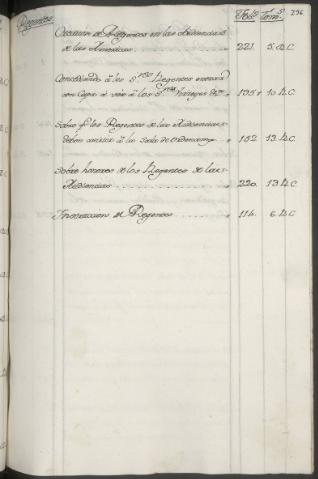 Regentes Folˢ Tomˢ 296
Creacion de Regentes en las Audiencias
de las Americas 221. 5. d. C
Concediendo à los Sʳᵉˢ Regentes
con Capa à vèr à los Sʳᵉˢ Virreyes &ᵃ 195 10. d. C
Sobre qᵉ los Regentes de las Audiencias
deben asistir à la Sala de Ordenanza 152 13. d. C
Sobre honores de los Regentes de las
Audiencias 220. 13 d. C
Instruccion de Regentes 114. 6. d. C